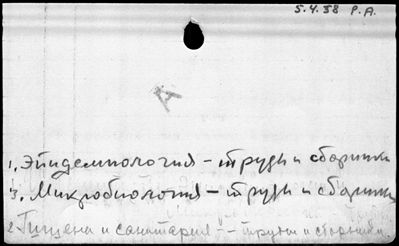 5.4.58 P.A.
А
1. Эпидемиология - труды и сборники
3. Микробиология - труды и сборники
2. Гигиена и санитария - труды и сборники